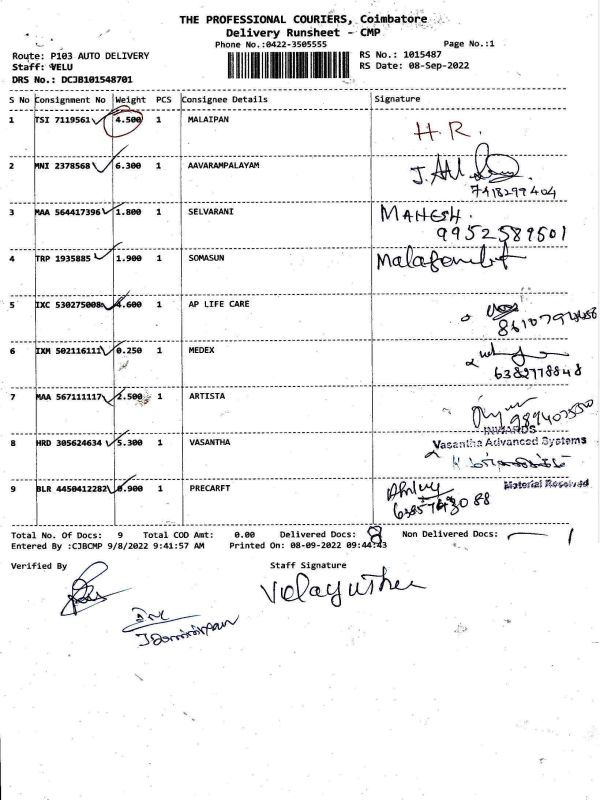 THE PROFESSIONAL COURIERS, Coimbatore
Delivery Runsheet - CMP
Phone No.:0422-3505555 Page No.:1
Route: P103 AUTO DELIVERY RS No.: 1015487
Staff: VELU RS Date: 08-Sep-2022
DRS No.: DCJB101548701
S No Consignment No Weight PCS Consignee Details Signature
1 TSI 7119561 4.500 1 MALAIPAN H.R.
2 MNI 2378568 6.300 1 AAVARAMPALAYAM
7418297404
3 MAA 564417396 1.800 1 SELVARANI MAHESH.
9952589501
4 TRP 1935885 1.900 1 SOMASUN
5 IXC 530275008 4.600 1 AP LIFE CARE
6 IXM 502116111 0.250 1 MEDEX
6382778848
7 MAA 567111117 2.500 1 ARTISTA
INWARDS
8 HRD 305624634 5.300 1 VASANTHA Vasantha Advanced Systems
Material Received
9 BLR 4450412282 0.900 1 PRECARFT
Total No. Of Docs: 9 Total COD Amt: 0.00 Delivered Docs: 8 Non Delivered Docs: 1
Entered By :CJBCMP 9/8/2022 9:41:57 AM Printed On: 08-09-2022 09:44:43
Verified By Staff Signature